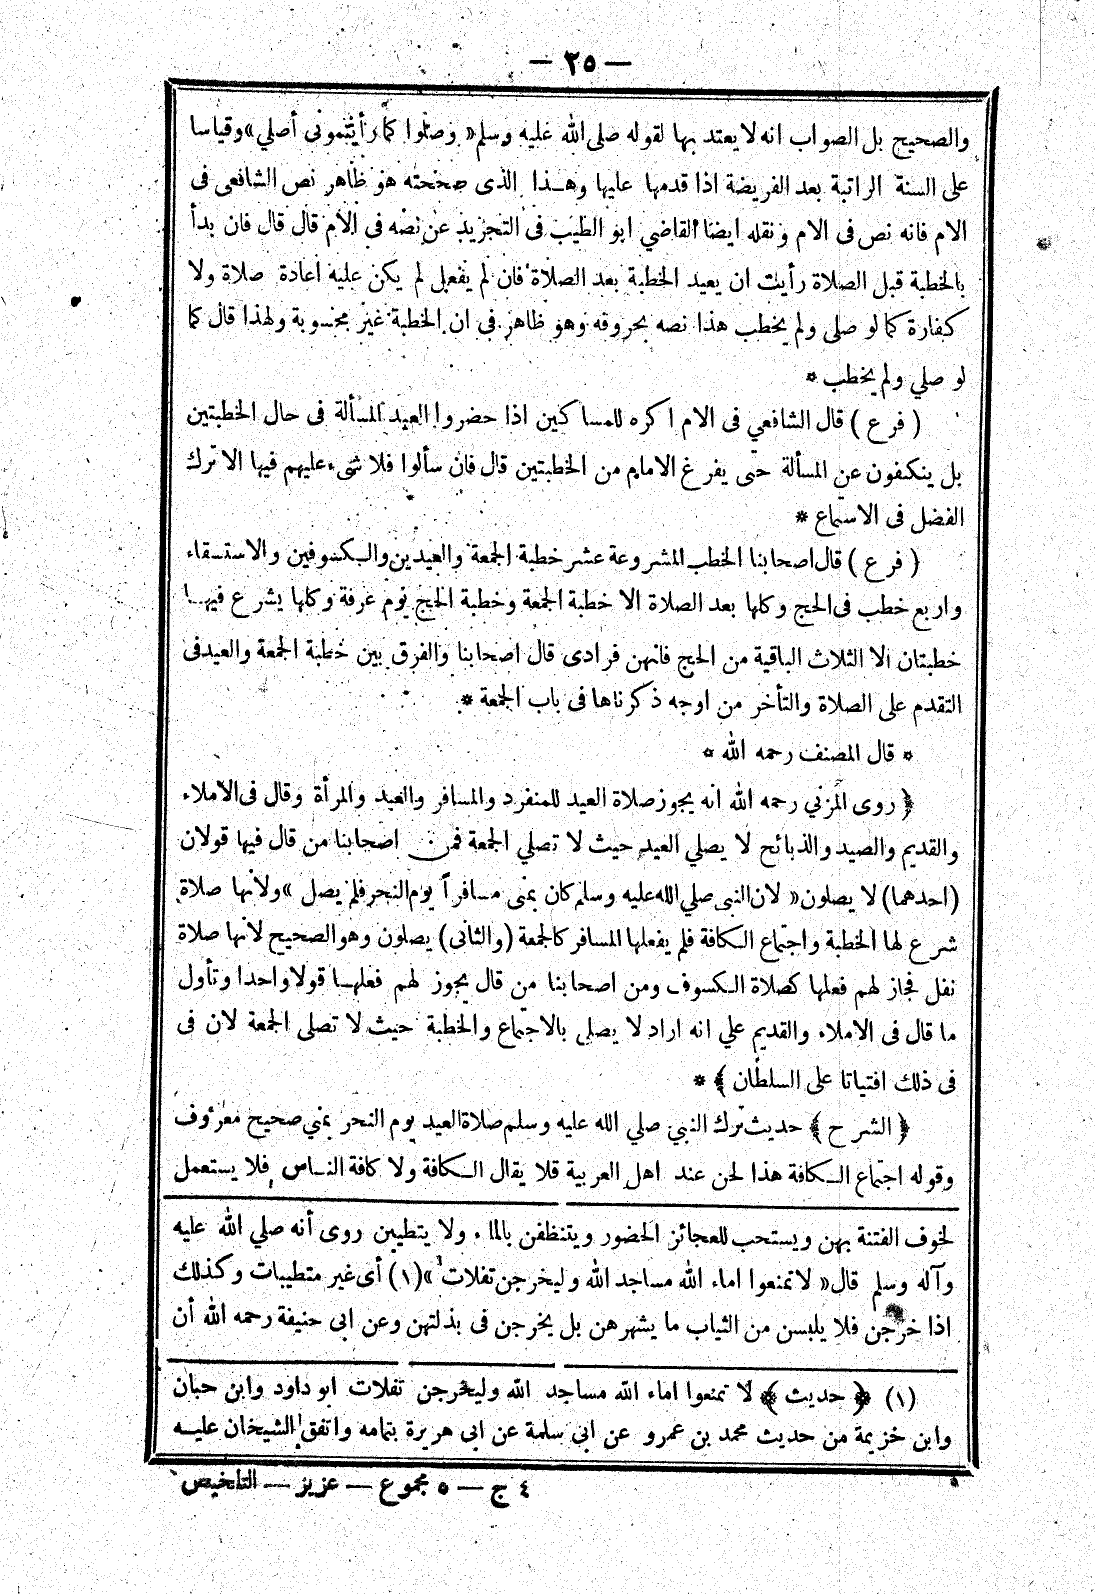 — ٢٥ —
والصحيح بل الصواب انه لا يعتد بها لقوله صلى الله عليه وسلم « وصلوا كما رأيتمونى أصلي » وقياسا
على السنة الراتبة بعد الفريضة اذا قدمها عليها وهـذا الذى صححته هو ظاهر نص الشافعى فى
الام فانه نص فى الام ونقله ايضا القاضي ابو الطيب فى التجريد عن نصه في الأم قال قال فان بدأ
بالخطبة قبل الصلاة رأيت ان يعيد الخطبة بعد الصلاة فان لم يفعل لم يكن عليه اعادة صلاة ولا
كفارة كما لو صلى ولم يخطب هذا نصه بحروفه وهو ظاهر في ان الخطبة غير محسوبة ولهذا قال كما
لو صلي ولم يخطب *
( فرع ) قال الشافعي فى الام اكره للمساكين اذا حضروا العيد المسألة فى حال الخطبتين
بل ينكفون عن المسألة حتى يفرغ الامام من الخطبتين قال فان سألوا فلا شىء عليهم فيها الا ترك
الفضل فى الاستماع *
( فرع ) قال اصحابنا الخطب المشروعة عشر خطبة الجمعة والعيدين والـكسوفين والاستـقاء
واربع خطب فى الحج وكلها بعد الصلاة الا خطبة الجمعة وخطبة الحج يوم عرفة وكلها يشرع فيهـا
خطبتان الا الثلاث الباقية من الحج فانهن فرادى قال اصحابنا والفرق بين خطبة الجمعة والعيد فى
التقدم على الصلاة والتأخر من اوجه ذكرناها فى باب الجمعة *
* قال المصنف رحمه الله *
﴿ روى المزني رحمه الله انه يجوز صلاة العيد للمنفرد والمسافر والعبد والمرأة وقال فى الاملاء
والقديم والصيد والذبائح لا يصلي العيد حيث لا تصلي الجمعة فمن اصحابنا من قال فيها قولان
(احدهما) لا يصلون « لان النبى صلي الله عليه وسلم كان بمنى مسافراً يوم النحر فلم يصل » ولانها صلاة
شرع لها الخطبة واجتماع الـكافة فلم يفعلها المسافر كالجمعة (والثانى) يصلون وهو الصحيح لانها صلاة
نفل فجاز لهم فعلها كصلاة الـكسوف ومن اصحابنا من قال يجوز لهم فعلهـا قولا واحدا وتأول
ما قال فى الاملاء والقديم علي انه اراد لا يصلى بالاجتماع والخطبة حيث لا تصلى الجمعة لان فى
فى ذلك افتياتا على السلطان ﴾ *
﴿ الشرح ﴾ حديث ترك النبي صلي الله عليه وسلم صلاة العيد يوم النحر بمني صحيح معروف
وقوله اجتماع الـكافة هذا لحن عند اهل العربية فلا يقال الـكافة ولا كافة النـاس فلا يستعمل
لخوف الفتنة بهن ويستحب للعجائز الحضور ويتنظفن بالماء ولا يتطيبن روى أنه صلي الله عليه
وآله وسلم قال « لا تمنعوا اماء الله مساجد الله وليخرجن تفلات » (١) أى غير متطيبات وكذلك
اذا خرجن فلا يلبسن من الثياب ما يشهرهن بل يخرجن فى بذلتهن وعن ابى حنيفة رحمه الله أن
(١) ﴿ حديث ﴾ لا تمنعوا اماء الله مساجد الله وليخرجن تفلات ابو داود وابن حبان
وابن خزيمة من حديث محمد بن عمرو عن ابي سلمة عن ابى هريرة بتمامه واتفق الشيخان عليـه
٤ ج — ٥ مجموع — عزيز — التلخيص